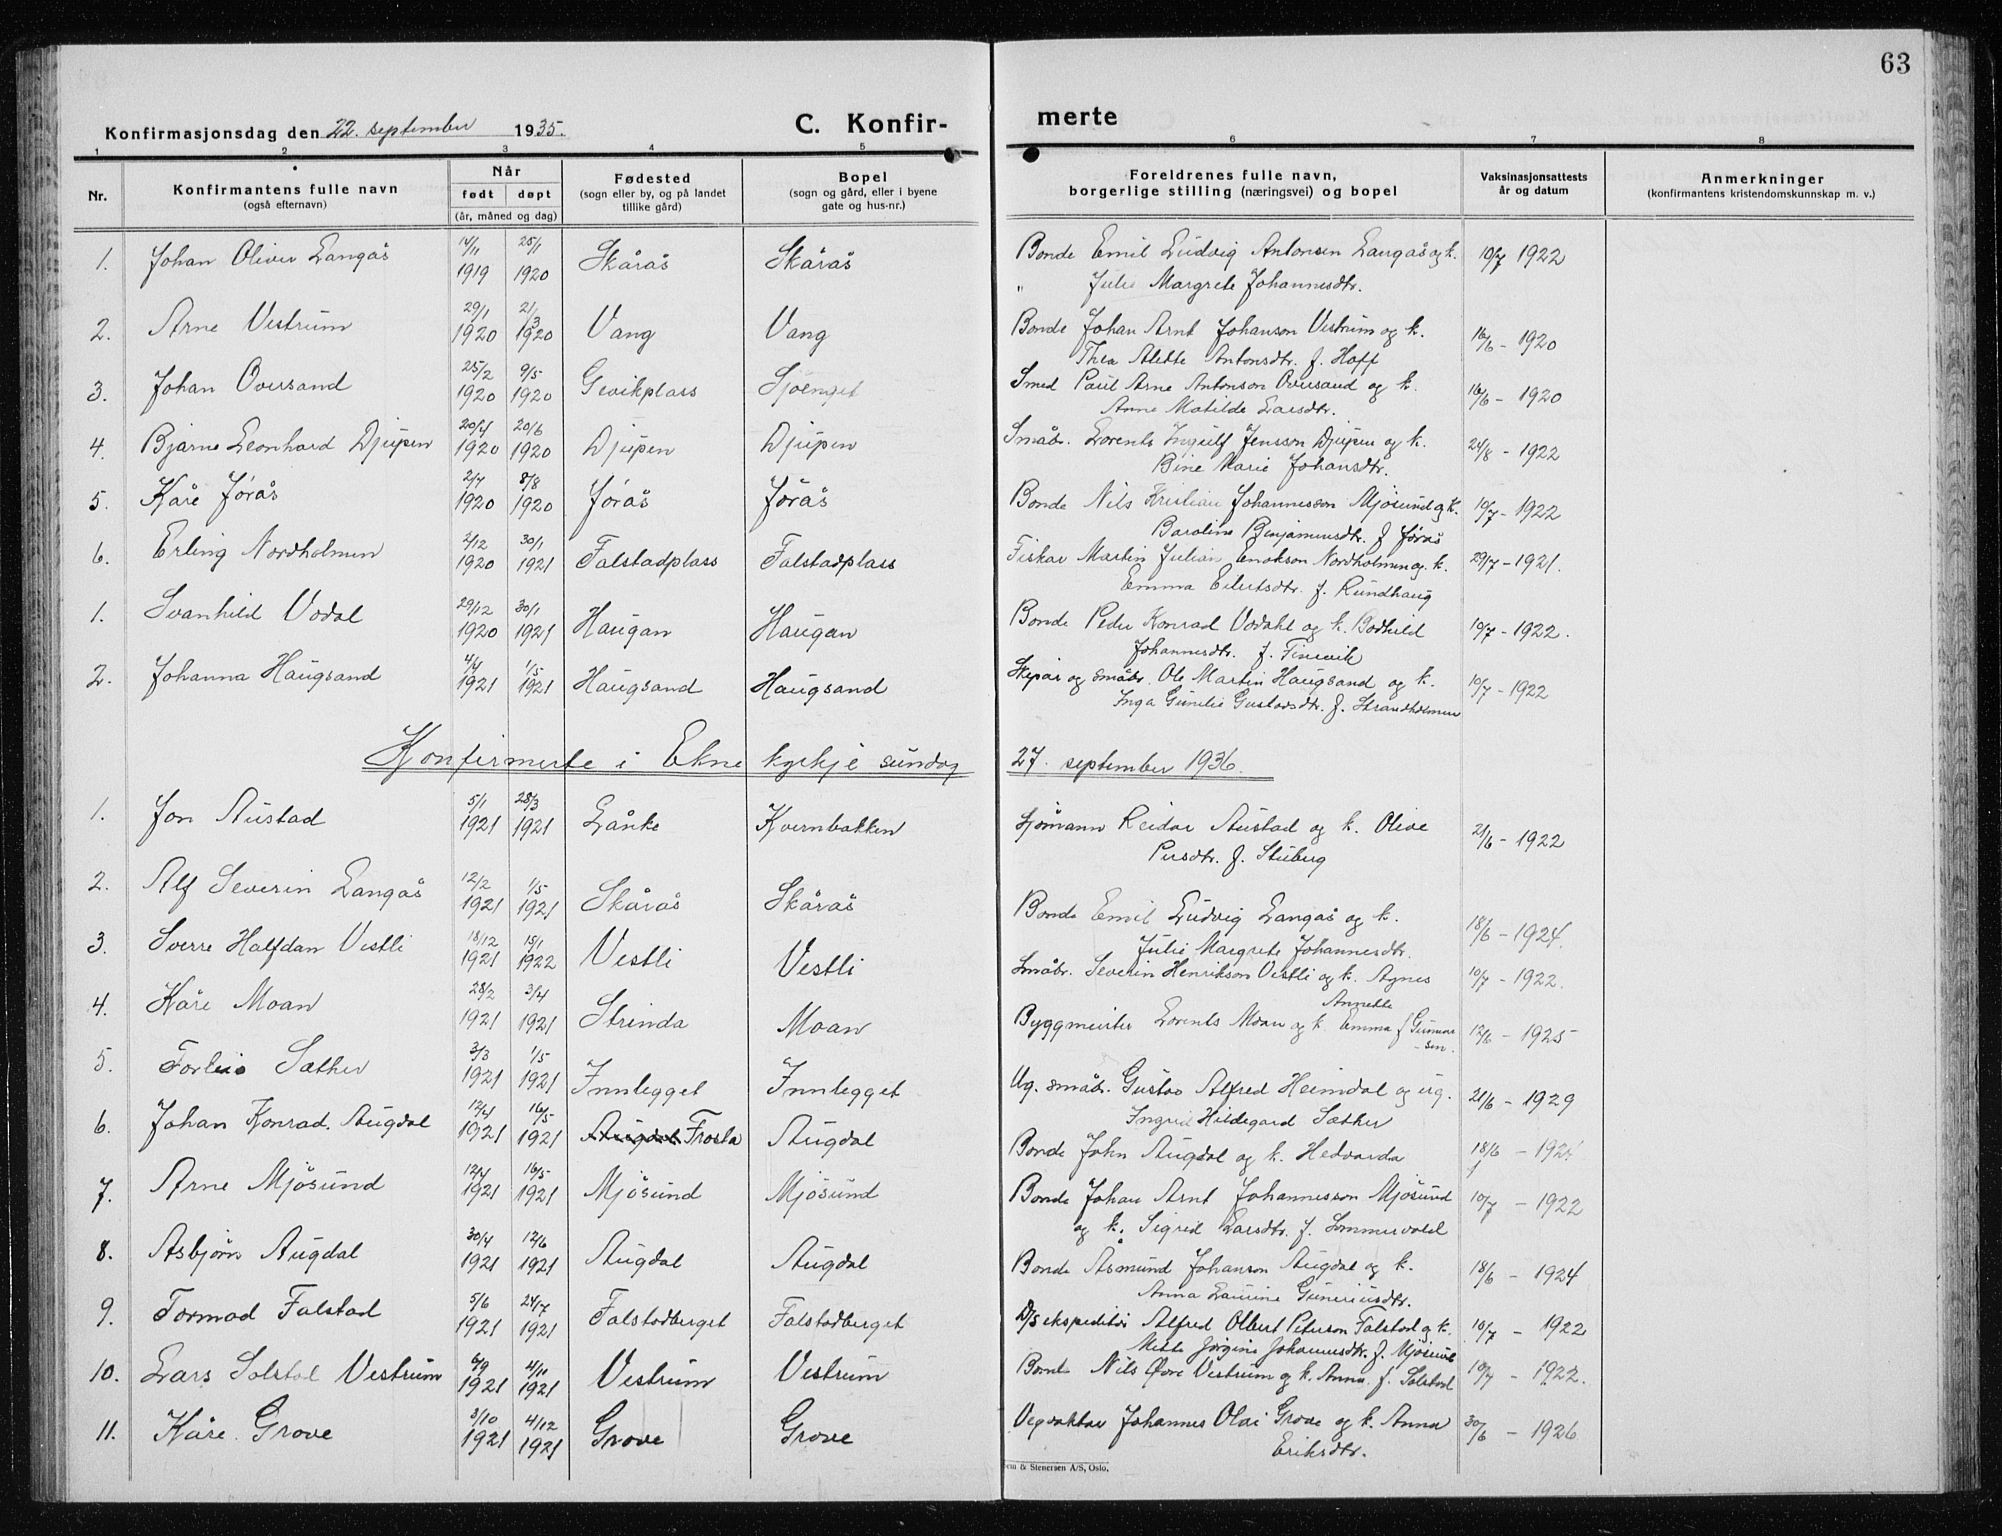 63
Konfirmasjonsdag den 22. september 1935.
C. Konfir-
merte
1 2 3 4 5 6 7 8
Nr.
Konfirmantens fulle navn
(også efternavn)
Når
født døpt
(år, måned og dag)
Fødested
(sogn eller by, og på landet
tillike gård)
Bopel
(sogn og gård, eller i byene
gate og hus-nr.)
Foreldrenes fulle navn,
borgerlige stilling (næringsvei) og bopel
Vaksinasjonsattests
år og datum
Anmerkninger
(konfirmantens kristendomskunnskap m. v.)
1. Johan Oliver Langås 14/11 1919 25/1 1920 Skårås Skårås Bonde Emil Ludvig Antonsen Langås og k. 10/7 1922
" Julie Margrete Johannesdtr.
2. Arne Vestrum 29/1 1920 21/3 1920 Vang Vang Bonde Johan Arnt Johanson Vestrum og k. 16/6 - 1920
Thea Alette Antonsdtr. f. Hoff
3. Johan Oversand 25/2 1920 9/5 1920 Gevikplass Sjøenget Smed Paul Arne Antonson Oversand og k. 16/6 - 1920
Anne Matilde Larsdtr.
4. Bjarne Leonhard Djupen 20/4 1920 20/6 1920 Djupen Djupen Småbr. Lorents Ingulf Jensson Djupen og k. 24/8 - 1922
Bine Marie Johansdtr.
5. Kåre Jørås 2/7 1920 8/8 1920 Jørås Jørås Bonde Nils Kristian Johannesson Mjøsund og k. 10/7 - 1922
Baroline Benjaminsdtr. f. Jørås
6. Erling Nordholmen 2/12 1920 30/1 1921 Falstadplass Falstadplass Fiskar Martin Julian Enokson Nordholmen og k. 29/7 - 1921.
Emma Eilertsdtr. f. Rundhaug
1. Svanhild Vodal 29/12 1920 30/1 1921 Haugan Haugan Bonde Peder Konrad Vodahl og k. Bodhild 10/7 - 1922.
Johannesdtr. f. Finsvik
2. Johanna Haugsand 4/4 1921 1/5 1921 Haugsand Haugsand Skipar og småbr. Ole Martin Haugsand og k. 10/7 - 1922
Inga Gunelie Gustavsdtr. f. Strandholmen
Konfirmerte i Ekne kyrkje sundag 27. september 1936.
1. Jon Austad 5/1 1921 28/3 1921 Lånke Kvernbakken Sjømann Reidar Austad og k. Olive 21/6 - 1922
Persdtr. f. Stuberg
2. Alf Severin Langås 12/2 1921 1/5 1921 Skårås Skårås Bonde Emil Ludvig Langås og k. 18/6 - 1924.
Julie Margrete Johannesdtr.
3. Sverre Halfdan Vestli 18/12 1921 15/1 1922 Vestli Vestli Småbr. Severin Henrikson Vestli og k. Agnes 10/7 - 1922.
Annette
4. Kåre Moan 28/2 1921 3/4 1921 Strinda Moan Byggmeister Lorents Moan og k. Emma f. Gunnar 12/6 - 1925
-sen.
5. Torleis Sæther 3/3 1921 1/5 1921 Innlegget Innlegget Ug. småbr. Gustav Alfred Heimdal og ug. 21/6 - 1929
Ingrid Hildegard Sæther
6. Johan Konrad Augdal 12/4 1921 16/5 1921 Augdal Frosta Augdal Bonde John Augdal og k. Hedvarda 18/6 - 1924
7. Arne Mjøsund 12/4 1921 16/5 1921 Mjøsund Mjøsund Bonde Johan Arnt Johannesson Mjøsund 10/7 - 1922
og k. Sigrid Larsdtr. f. Sommervold
8. Asbjørn Augdal 30/4 1921 12/6 1921 Augdal Augdal Bonde Åsmund Johanson Augdal og k. 18/6 - 1924
Anna Laurine Guneriusdtr.
9. Tormod Falstad 5/6 1921 24/7 1921 Falstadberget Falstadberget D/S ekspeditør Alfred Olbert Peterson Falstad og k. 10/7 - 1922
Mette Jørgine Johannesdtr. f. Mjøsund
10. Lars Solstad Vestrum 6/9 1921 4/11 1921 Vestrum Vestrum Bonde Nils Øvre Vestrum og k. Anna f. Solstad 10/7 - 1922.
11. Kåre Grove 3/10 1921 4/12 1921 Grove Grove Vegvaktar Johannes Olai Grove og k. Anna 30/6 - 1926
Eriksdtr.
em & Stenersen A/S, Oslo.